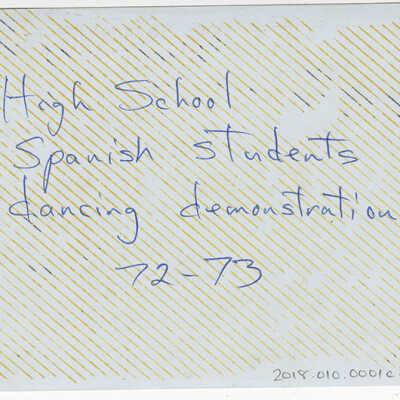 High School
Spanish students
dancing demonstration
72-73
2018.010.0001c